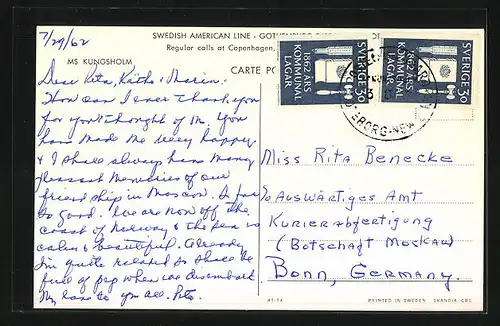 7/29/62
SWEDISH AMERICAN LINE - GOTHENBURG
Regular calls at Copenhagen,
MS KUNGSHOLM
CARTE PO
SVERIGE 30
1862 ÅRS
KOMMUNAL
LAGAR
SVERIGE 30
1862 ÅRS
KOMMUNAL
LAGAR
BORG-NEW
Dear Rita, Käthe & Maria:
How can I ever thank you
for your thought of me. You
have made me very happy
& I shall always have many
pleasant memories of our
friendship in Moscow. So far
so good. We are now off the
coast of Norway & the sea is
calm & beautiful. Already
I'm quite relaxed so shall be
full of pep when we disembark
My love to you all.
Miss Rita Benecke
c/o Auswärtiges Amt
Kurierabfertigung
(Botschaft Moskau)
Bonn, Germany.
PRINTED IN SWEDEN